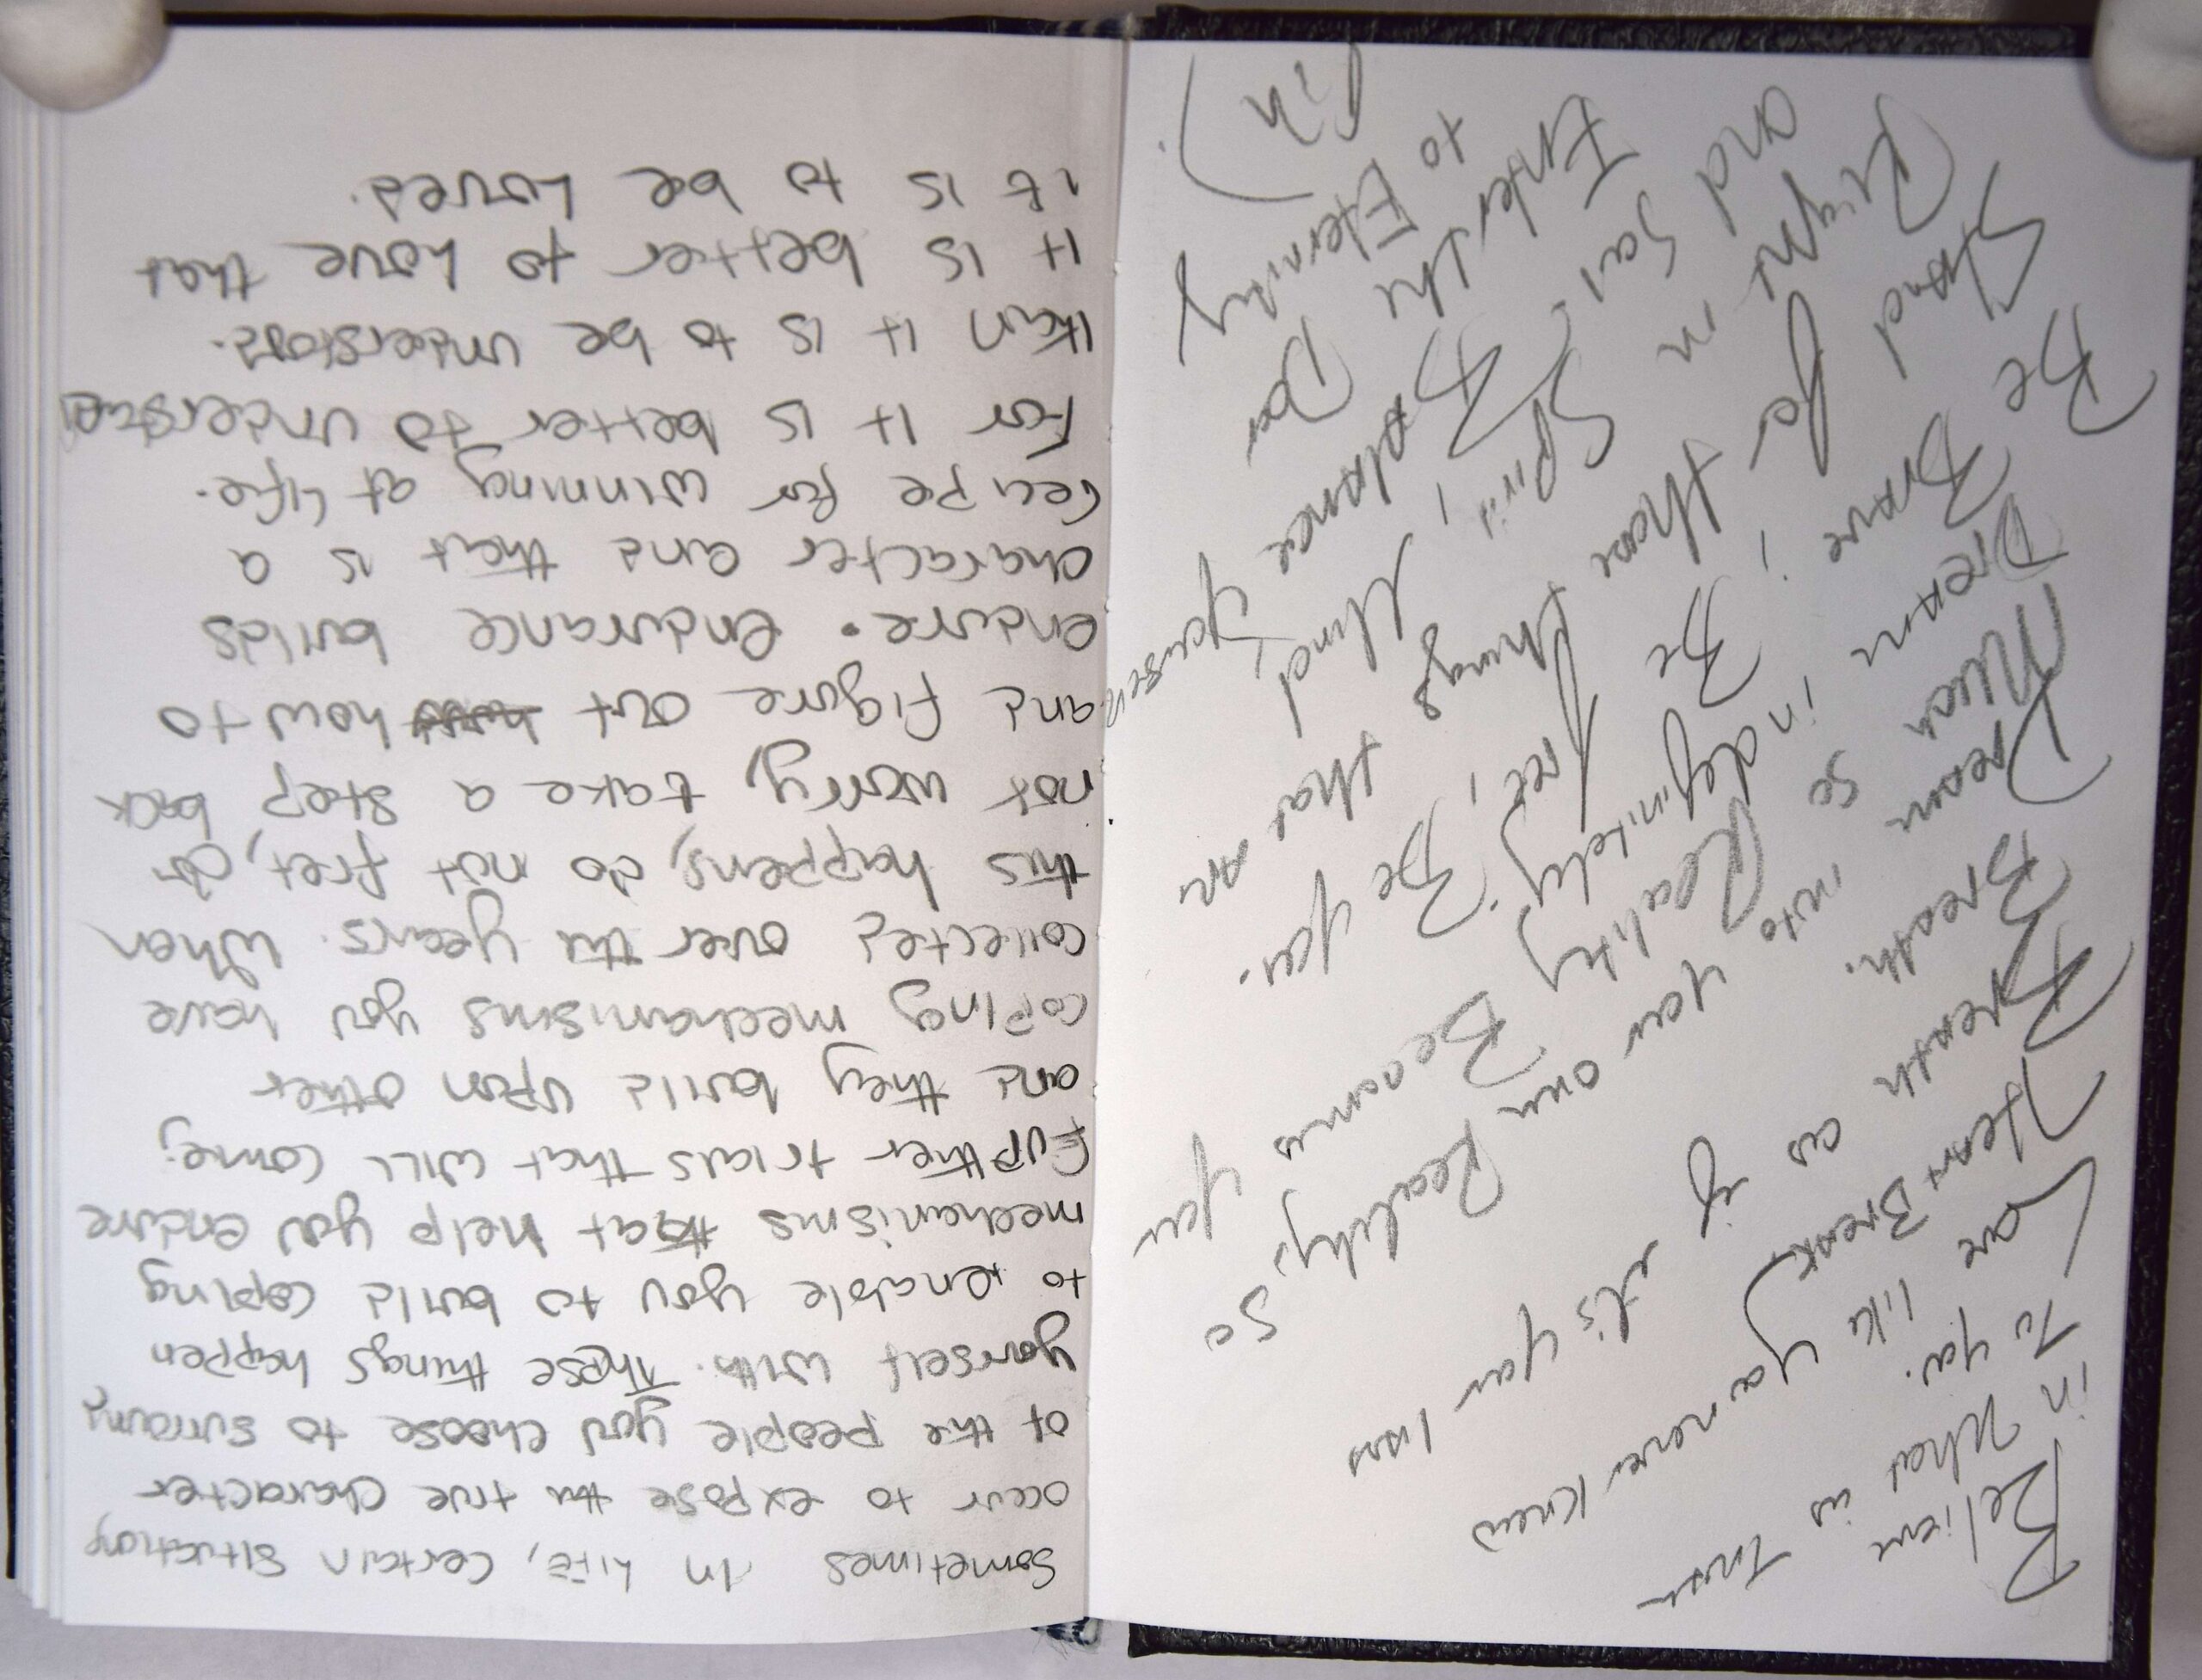 Believe
in What is Truth
To you.
Love like you never knew
Heart Break,
Breath as if it's your last
Breath.
Dream into your own Reality, so
Much so Reality Becomes you
Dream indefinitely.
Be Brave; Be free, Be you.
Stand for those things that are
Right in Spirit, Mind,
and Soul. Balance yourself
Enter the Door
to Eternity
Sometimes in Life, certain situations
occur to expose the true character
of the people you choose to surround
yourself with. These things happen
to enable you to build coping
mechanisms that help you endure
further trials that will come;
and they build upon other
coping mechanisms you have
collected over the years. When
this happens, do not fret, do
not worry, take a step back
and figure out how to
endure. Endurance builds
character and that is a
recipe for winning at life.
For it is better to understand
than it is to be understood.
it is better to Love that
it is to be Loved.